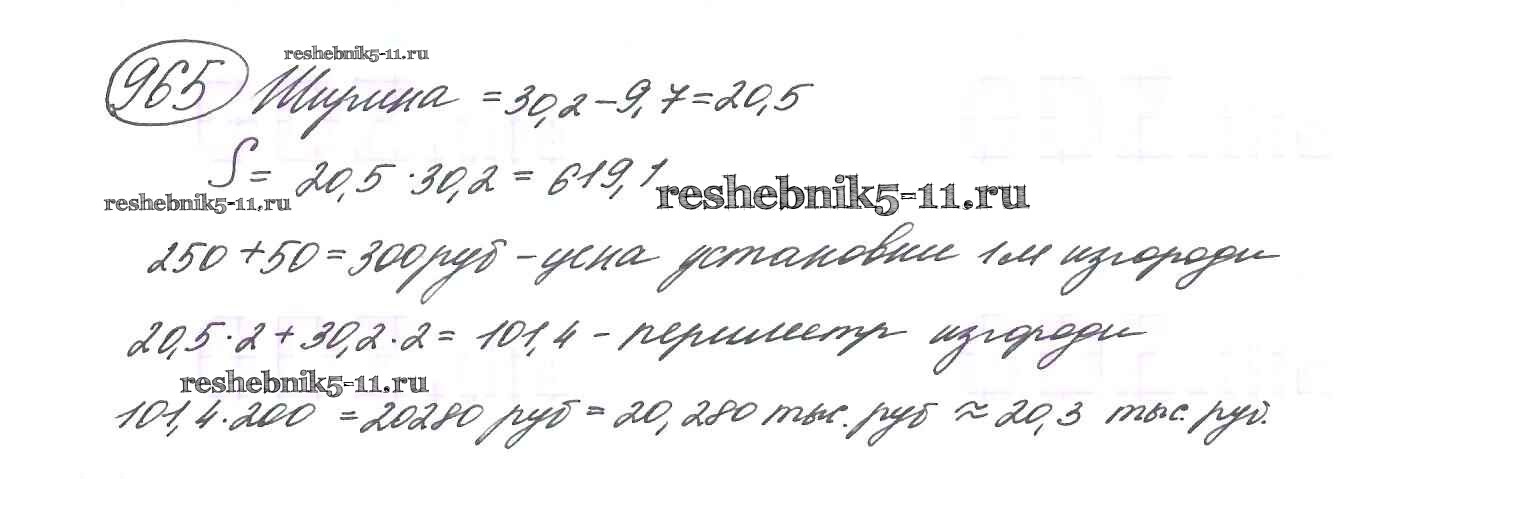 reshebnik5-11.ru
965 Ширина = 30,2 - 9,7 = 20,5
S = 20,5 · 30,2 = 619,1
reshebnik5-11.ru reshebnik5-11.ru
250 + 50 = 300 руб - цена установки 1м изгороди
20,5 · 2 + 30,2 · 2 = 101,4 - периметр изгороди
reshebnik5-11.ru
101,4 · 200 = 20280 руб = 20,280 тыс. руб ≈ 20,3 тыс. руб.